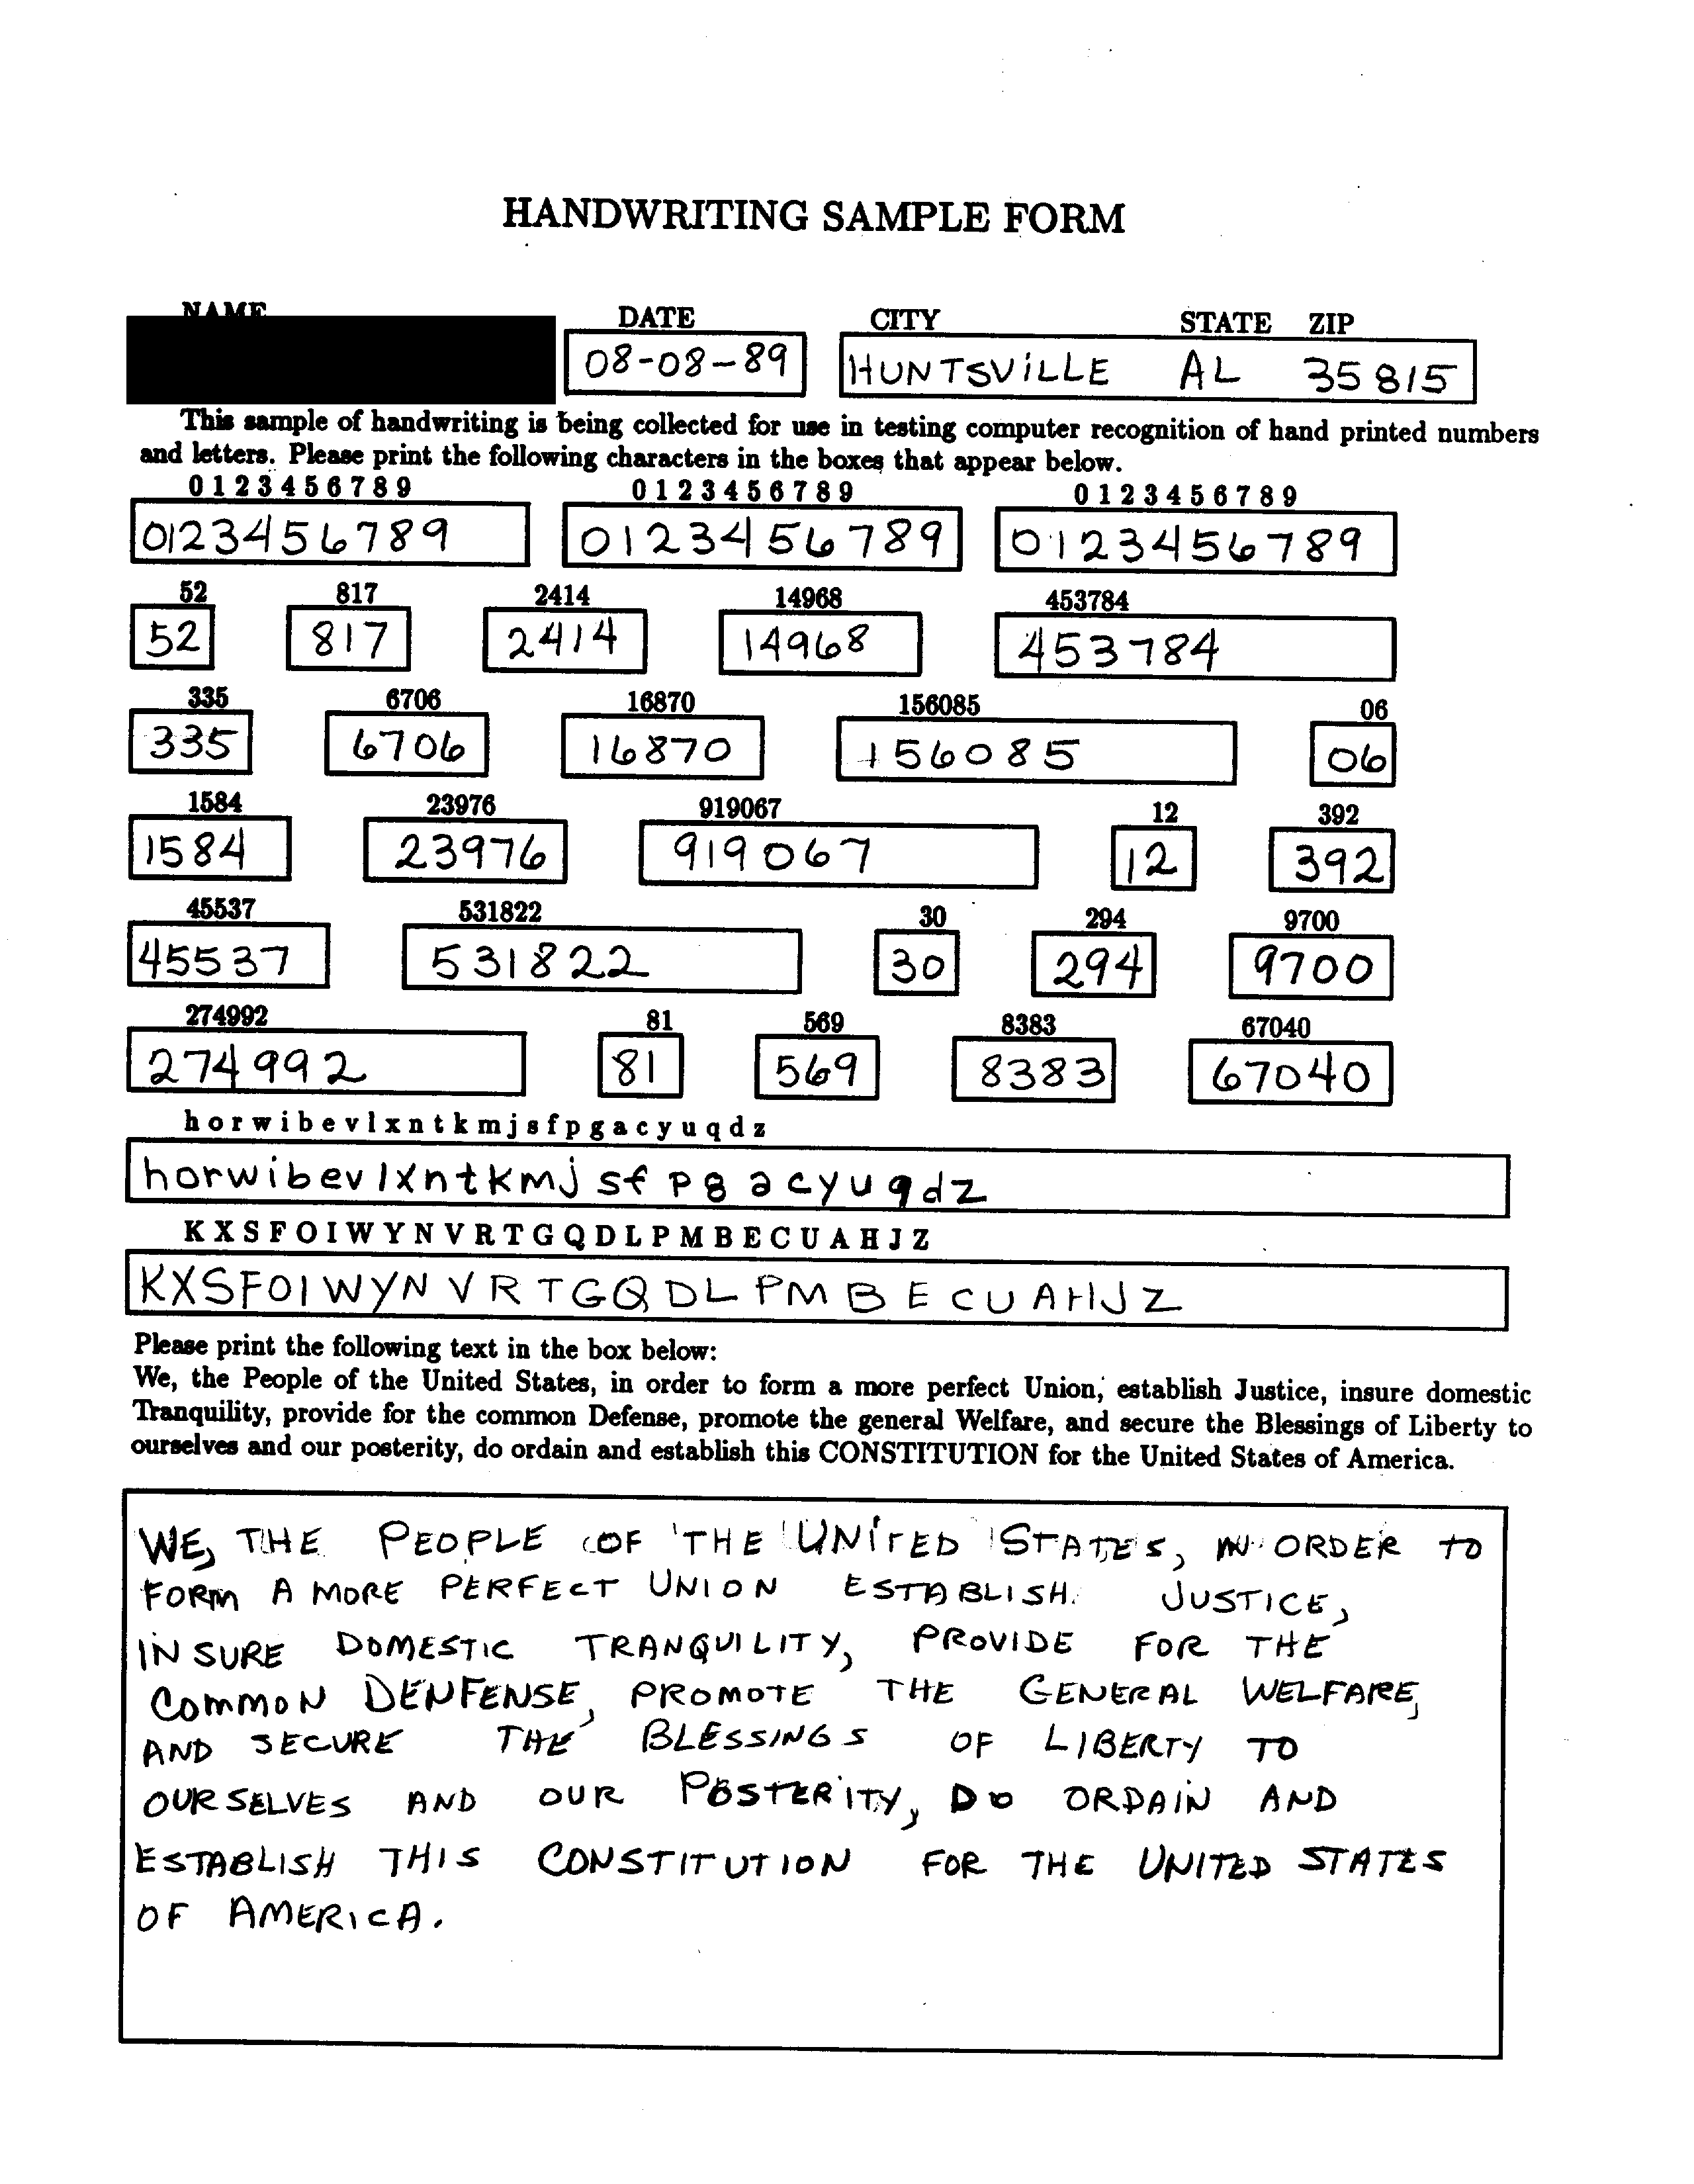 HANDWRITING SAMPLE FORM
NAME DATE CITY STATE ZIP
08-08-89 HUNTSVILLE AL 35815
This sample of handwriting is being collected for use in testing computer recognition of hand printed numbers
and letters. Please print the following characters in the boxes that appear below.
0 1 2 3 4 5 6 7 8 9 0 1 2 3 4 5 6 7 8 9 0 1 2 3 4 5 6 7 8 9
0123456789 0123456789 0123456789
52 817 2414 14968 453784
52 817 2414 14968 453784
335 6706 16870 156085 06
335 6706 16870 156085 06
1584 23976 919067 12 392
1584 23976 919067 12 392
45537 531822 30 294 9700
45537 531822 30 294 9700
274992 81 569 8383 67040
274992 81 569 8383 67040
h o r w i b e v l x n t k m j s f p g a c y u q d z
horwibevlxntkmjsfpgacyuqdz
K X S F O I W Y N V R T G Q D L P M B E C U A H J Z
KXSFOIWYNVRTGQDLPMBECUAHJZ
Please print the following text in the box below:
We, the People of the United States, in order to form a more perfect Union, establish Justice, insure domestic
Tranquility, provide for the common Defense, promote the general Welfare, and secure the Blessings of Liberty to
ourselves and our posterity, do ordain and establish this CONSTITUTION for the United States of America.
WE, THE PEOPLE OF THE UNITED STATES, IN ORDER TO
FORM A MORE PERFECT UNION ESTABLISH JUSTICE,
INSURE DOMESTIC TRANQUILITY, PROVIDE FOR THE
COMMON DENFENSE, PROMOTE THE GENERAL WELFARE,
AND SECURE THE BLESSINGS OF LIBERTY TO
OURSELVES AND OUR POSTERITY, DO ORDAIN AND
ESTABLISH THIS CONSTITUTION FOR THE UNITED STATES
OF AMERICA.